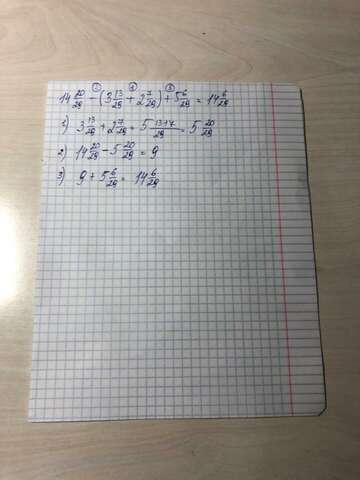 ② ① ③
14 20/29 - (3 13/29 + 2 7/29) + 5 6/29 = 14 6/29
1) 3 13/29 + 2 7/29 = 5 13+7/29 = 5 20/29
2) 14 20/29 - 5 20/29 = 9
3) 9 + 5 6/29 = 14 6/29